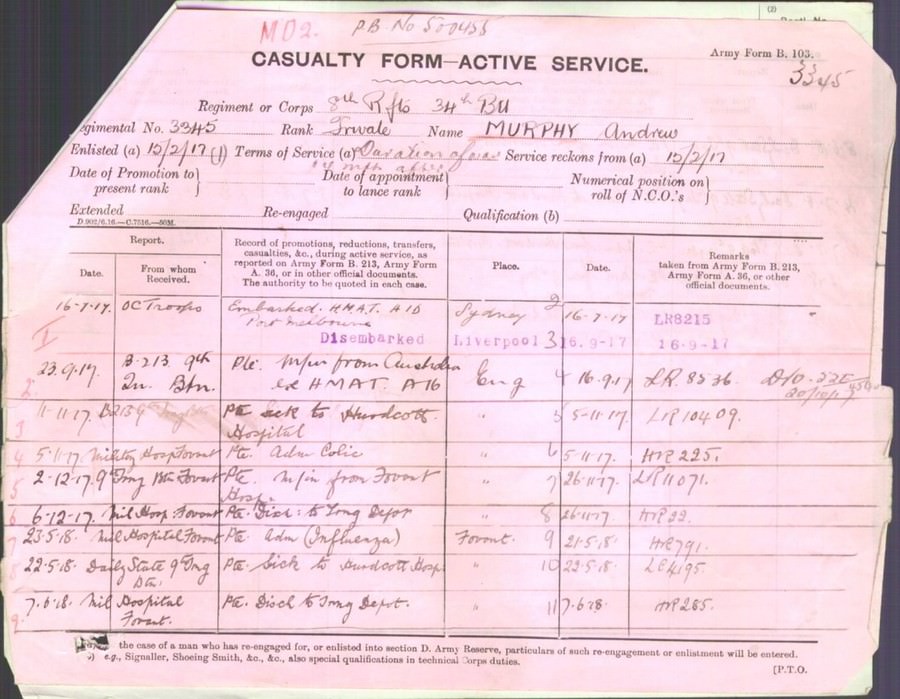 (2)
MD2. P.B. No 500455
Army Form B. 103.
CASUALTY FORM—ACTIVE SERVICE.
3345
Regiment or Corps 8th Rfts 34th Bn
egimental No. 3345 Rank Private Name MURPHY Andrew
Enlisted (a) 15/2/17 Terms of Service (a) Duration of war Service reckons from (a) 15/2/17
Date of Promotion to present rank
Date of appointment to lance rank
Numerical position on roll of N.C.O.'s
Extended Re-engaged Qualification (b)
D.902/6.16.—C.7516.—50M.
Report.
Date. From whom Received.
Record of promotions, reductions, transfers, casualties, &c., during active service, as reported on Army Form B. 213, Army Form A. 36, or in other official documents. The authority to be quoted in each case.
Place. Date.
Remarks taken from Army Form B. 213, Army Form A. 36, or other official documents.
16-7-17. OC Troops Embarked. HMAT. A16 Sydney 2 16-7-17 LR8215
Port Melbourne
1 Disembarked Liverpool 3 16.9-17 16-9-17
2 23.9.17. B.213 9th Pte. M/in from Australia Eng 4 16.9.17 LR. 8536.
Tn. Btn. ex HMAT. A16 20/10/17
3 11-11-17. B213 9 Pte Sick to Hurdcott " 5 5-11-17. LR 10409.
Hospital
4 5-11-17. Military Hosp Fovant Pte. Adm Colic " 6 5-11-17. HR 225.
5 2-12-17. 9th Trng Btn Fovant Pte. M/in from Fovant " 7 26-11-17. LR 11071.
Hosp.
6 6-12-17. Mil Hosp. Fovant Pte. Disch: to Trng Depot " 8 26-11-17. HR 22.
7 23.5.18. Mil Hospital Fovant Pte. Adm (Influenza) Fovant. 9 21-5-18. HR 791.
8 22.5.18. Daily State 9 Trng Pte. Sick to Hurdcott Hosp " 10 22.5.18. LR 4195.
Btn.
9 7.6.18. Mil Hospital Pte. Disch to Trng Depot. " 11 7.6.18. HR 285.
Fovant.
the case of a man who has re-engaged for, or enlisted into section D. Army Reserve, particulars of such re-engagement or enlistment will be entered.
e.g., Signaller, Shoeing Smith, &c., &c., also special qualifications in technical Corps duties.
[P.T.O.